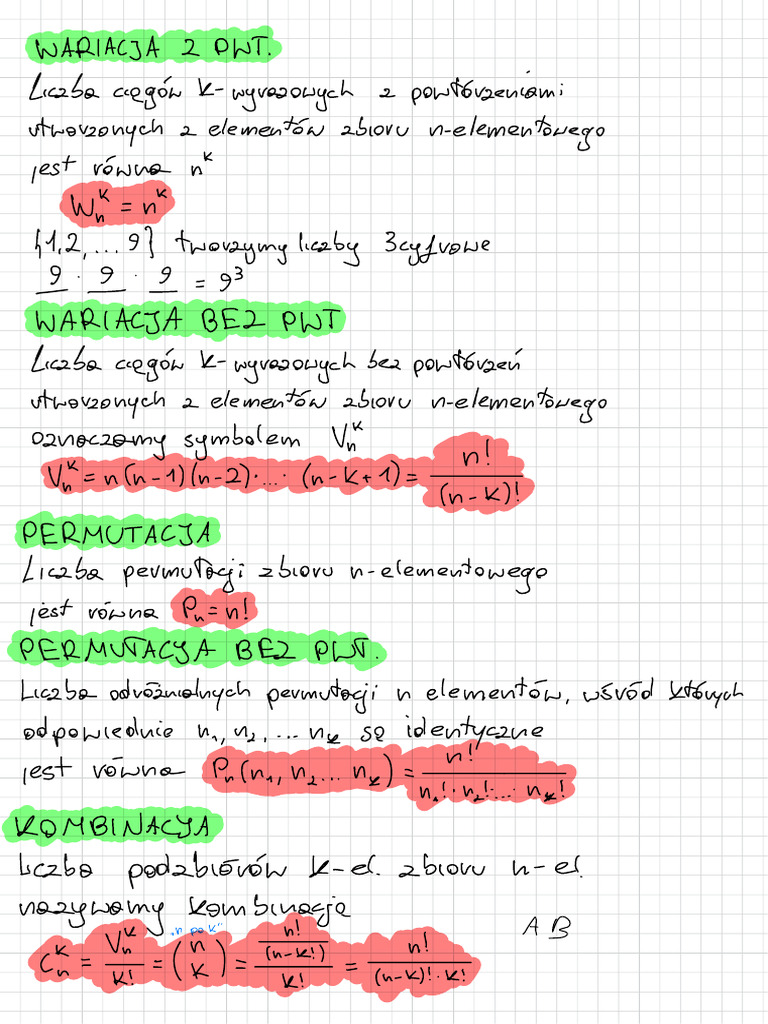 WARIACJA Z PWT.
Liczba ciągów k-wyrazowych z powtórzeniami
utworzonych z elementów zbioru n-elementowego
jest równa n^k
W_n^k = n^k
{1,2, ... 9} tworzymy liczby 3cyfrowe
9 · 9 · 9 = 9^3
WARIACJA BEZ PWT
Liczba ciągów k-wyrazowych bez powtórzeń
utworzonych z elementów zbioru n-elementowego
oznaczamy symbolem V_n^k
V_n^k = n(n-1)(n-2)·...·(n-k+1) = n!/(n-k)!
PERMUTACJA
Liczba permutacji zbioru n-elementowego
jest równa P_n = n!
PERMUTACJA BEZ PWT.
Liczba odróżnialnych permutacji n elementów, wśród których
odpowiednie n_1, n_2, ... n_k są identyczne
jest równa P_n(n_1, n_2 ... n_k) = n!/(n_1!·n_2!·...·n_k!)
KOMBINACJA
Liczba podzbiorów k-el. zbioru n-el.
nazywamy kombinację
A B
„n po k"
C_n^k = V_n^k/k! = (n k) = (n!/(n-k!))/k! = n!/((n-k)!·k!)